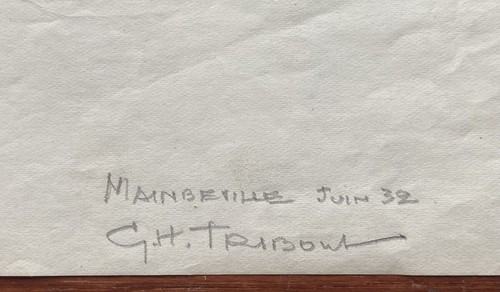 MAINBEVILLE JUIN 32
G.H. TRIBOUT